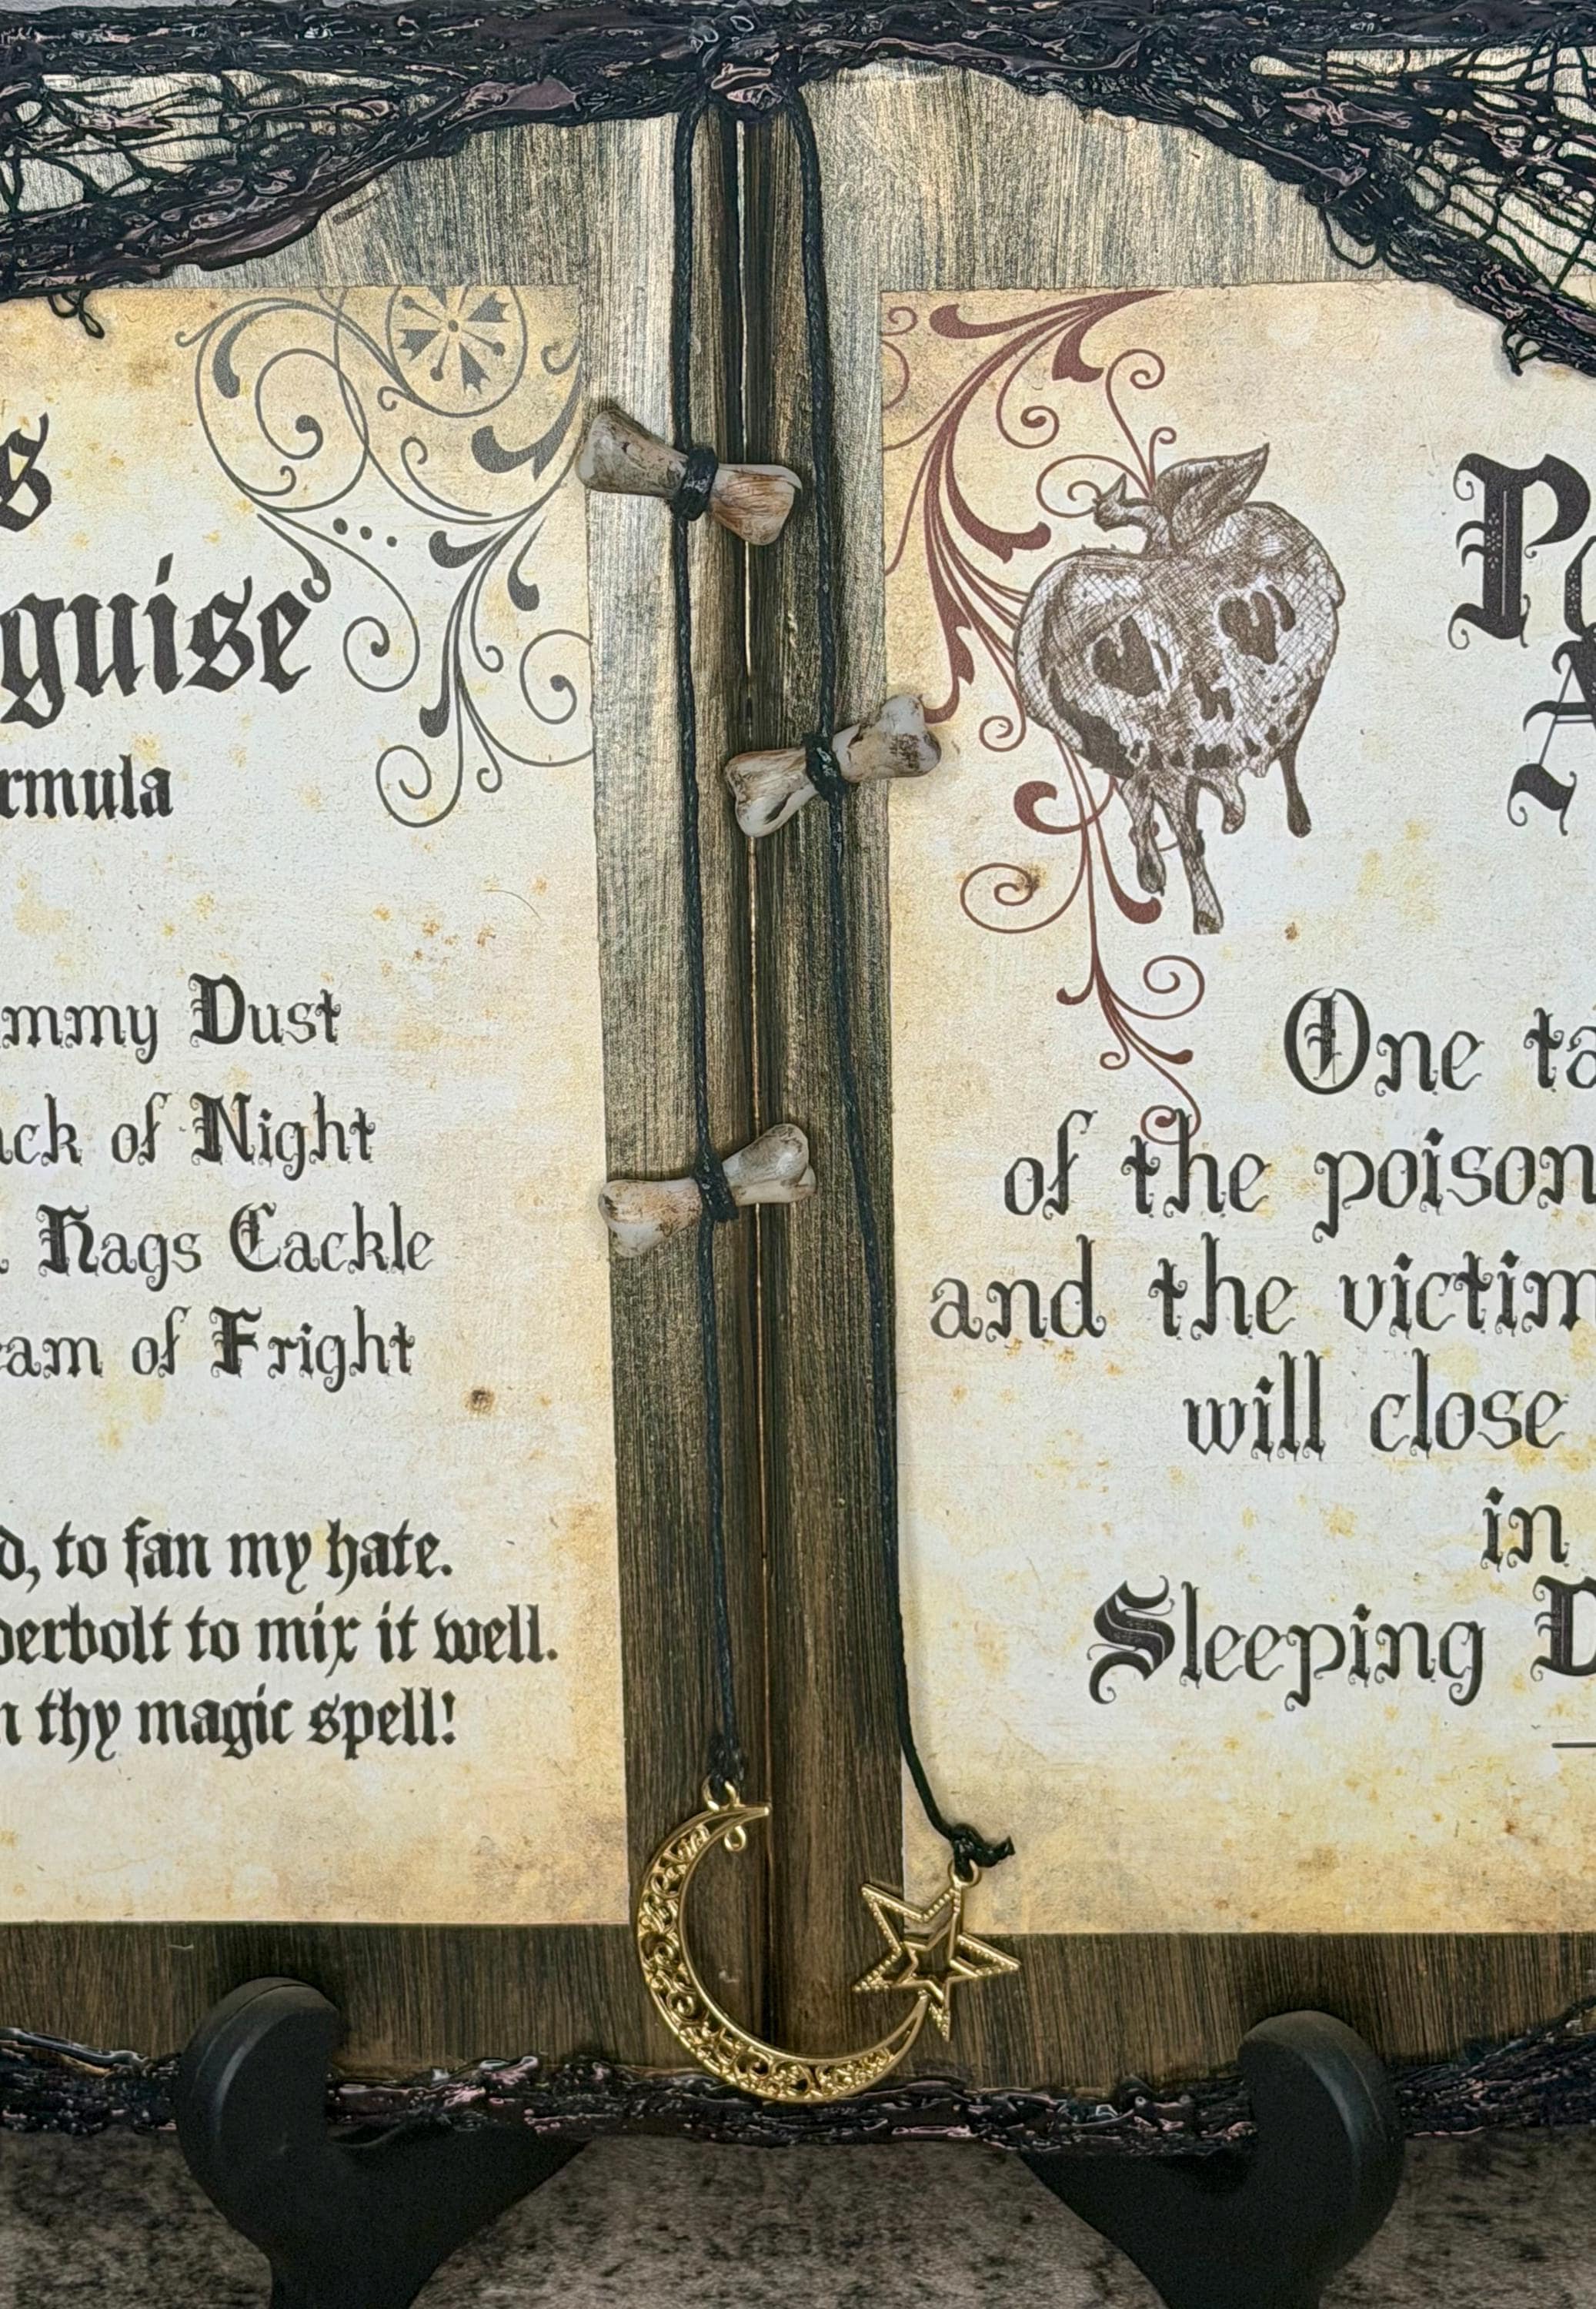 s
guise
rmula
mmy Dust
ack of Night
Hags Cackle
eam of Fright
d, to fan my hate.
derbolt to mix it well.
n thy magic spell!
Po
A
One ta
of the poison
and the victim
will close
in
Sleeping D